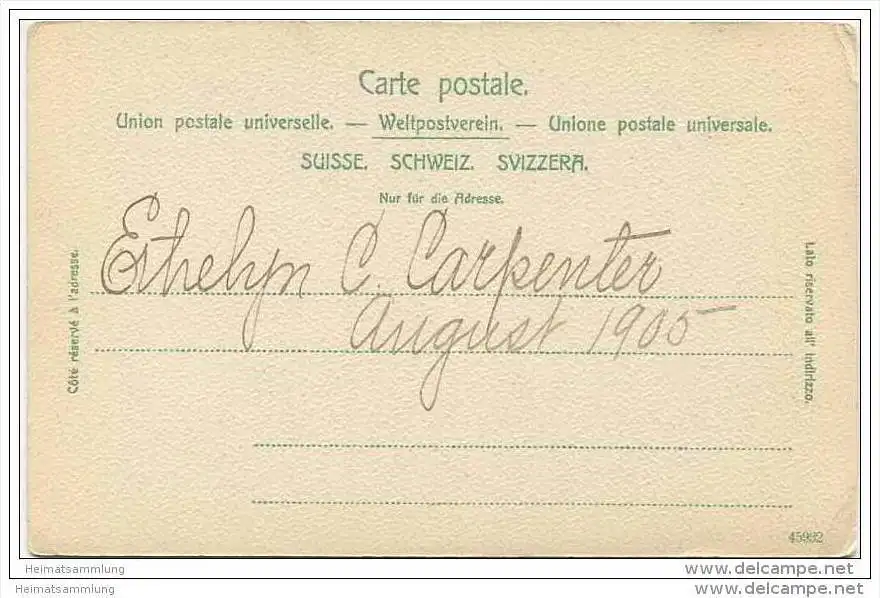 Carte postale.
Union postale universelle. — Weltpostverein. — Unione postale universale.
SUISSE. SCHWEIZ. SVIZZERA.
Nur für die Adresse.
Côté réservé à l'adresse.
Ethelyn C. Carpenter
August 1905
Lato riservato all' indirizzo.
45992
Heimatsammlung
www.delcampe.net
Heimatsammlung
www.delcampe.net